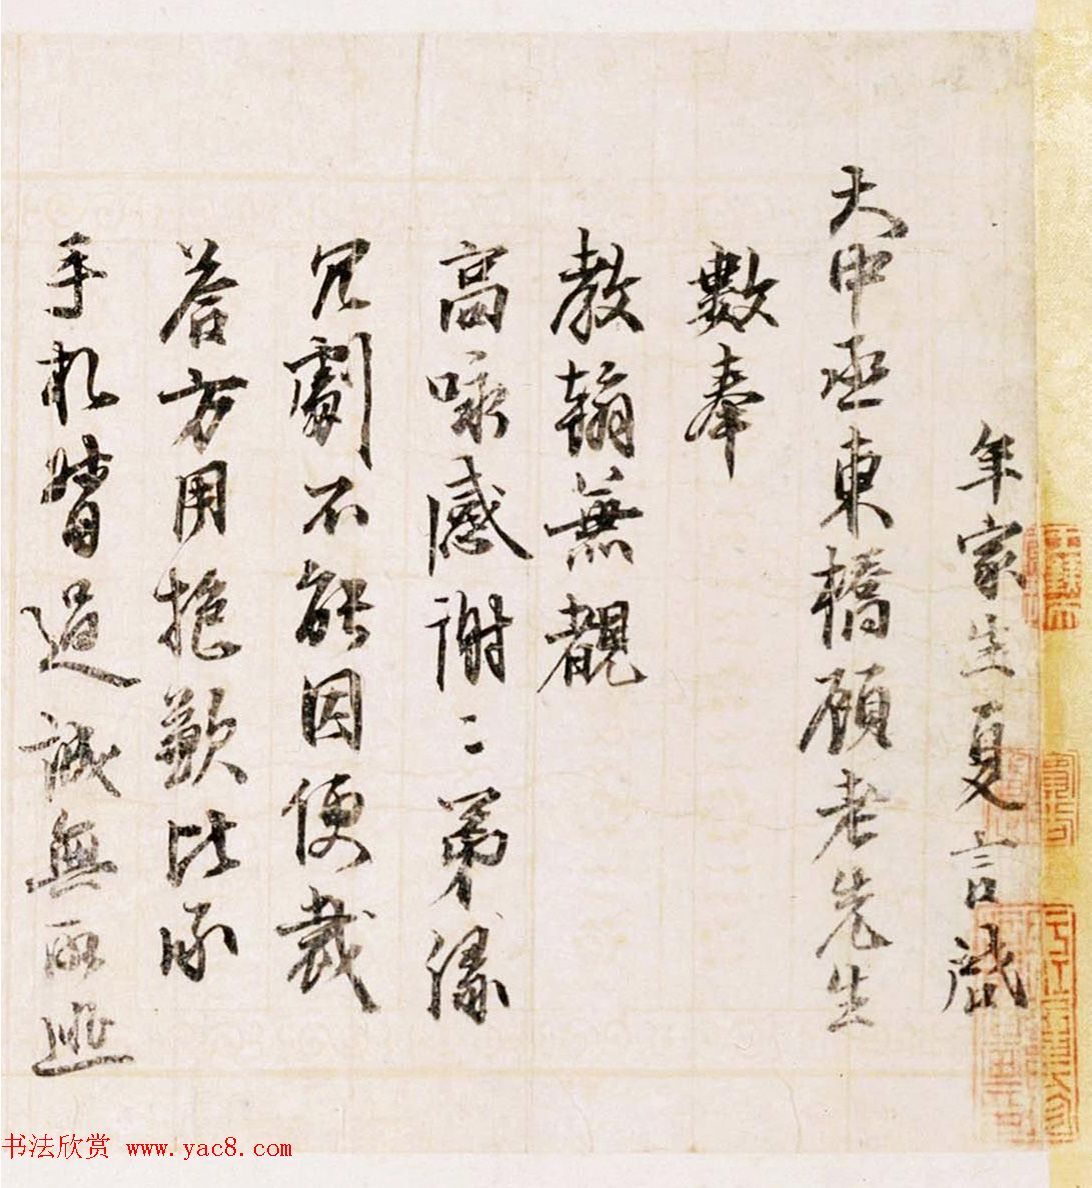 年家生夏言啟
大中丞東橋顧老先生
數奉
教翰兼覩
高咏感謝〻第緣
冗劇不能因便裁
答方用抱歉比承
手札
過誠無所逃
书法欣赏 www.yac8.com